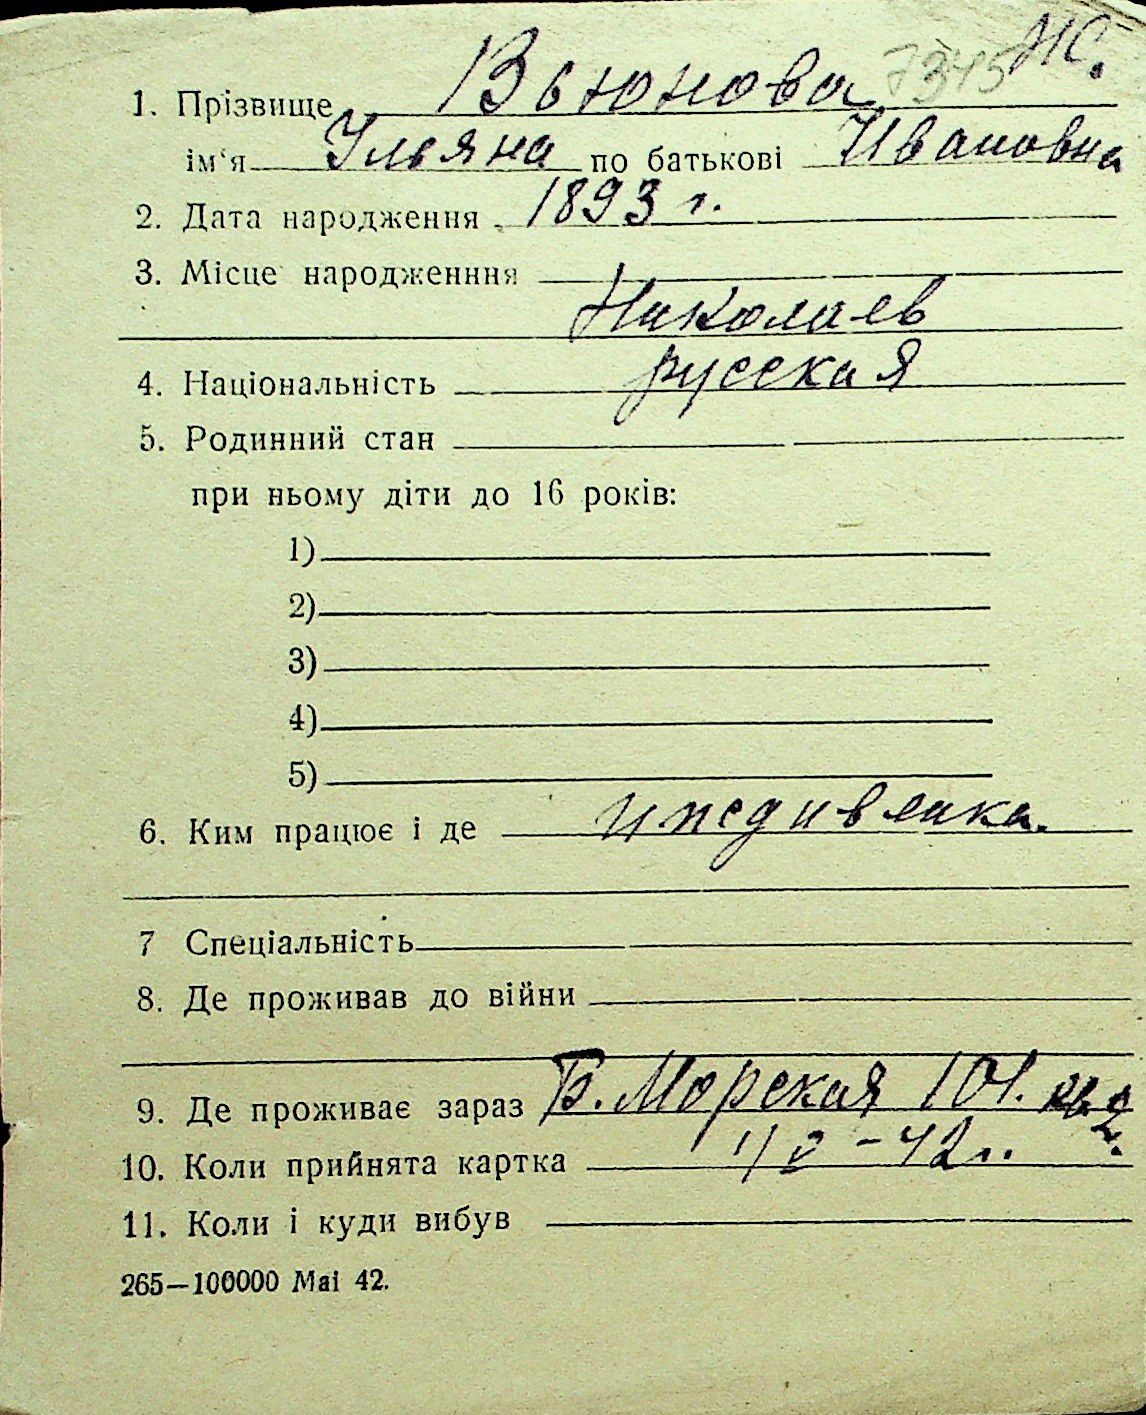 7345 Ж.
1. Прізвище Вьюнова
ім'я Ульяна по батькові Ивановна
2. Дата народження 1893 г.
3. Місце народженння
Николаев
4. Національність русская
5. Родинний стан
при ньому діти до 16 років:
1)
2)
3)
4)
5)
6. Ким працює і де иждивенка.
7 Спеціальність
8. Де проживав до війни
9. Де проживає зараз Б. Морская 101. кв. 2
10. Коли прийнята картка 1/V - 42 г.
11. Коли і куди вибув
265—100000 Mai 42.